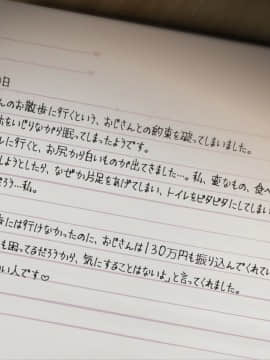 日
んのお散歩に行くという、おじさんとの約束を破ってしまいました。
をいじりながら眠ってしまったようです。
に行くと、お尻から白いものが出てきました…。私、変なもの、食べ
しようとしたり、なぜか片足をあげてしまい、トイレをビタビタにしてしまい
だろう…私。
歩には行けなかったのに、おじさんは130万円も振り込んでくれてい
も困ってるだろうから、気にすることはないよ」と言ってくれました。
い人です♡